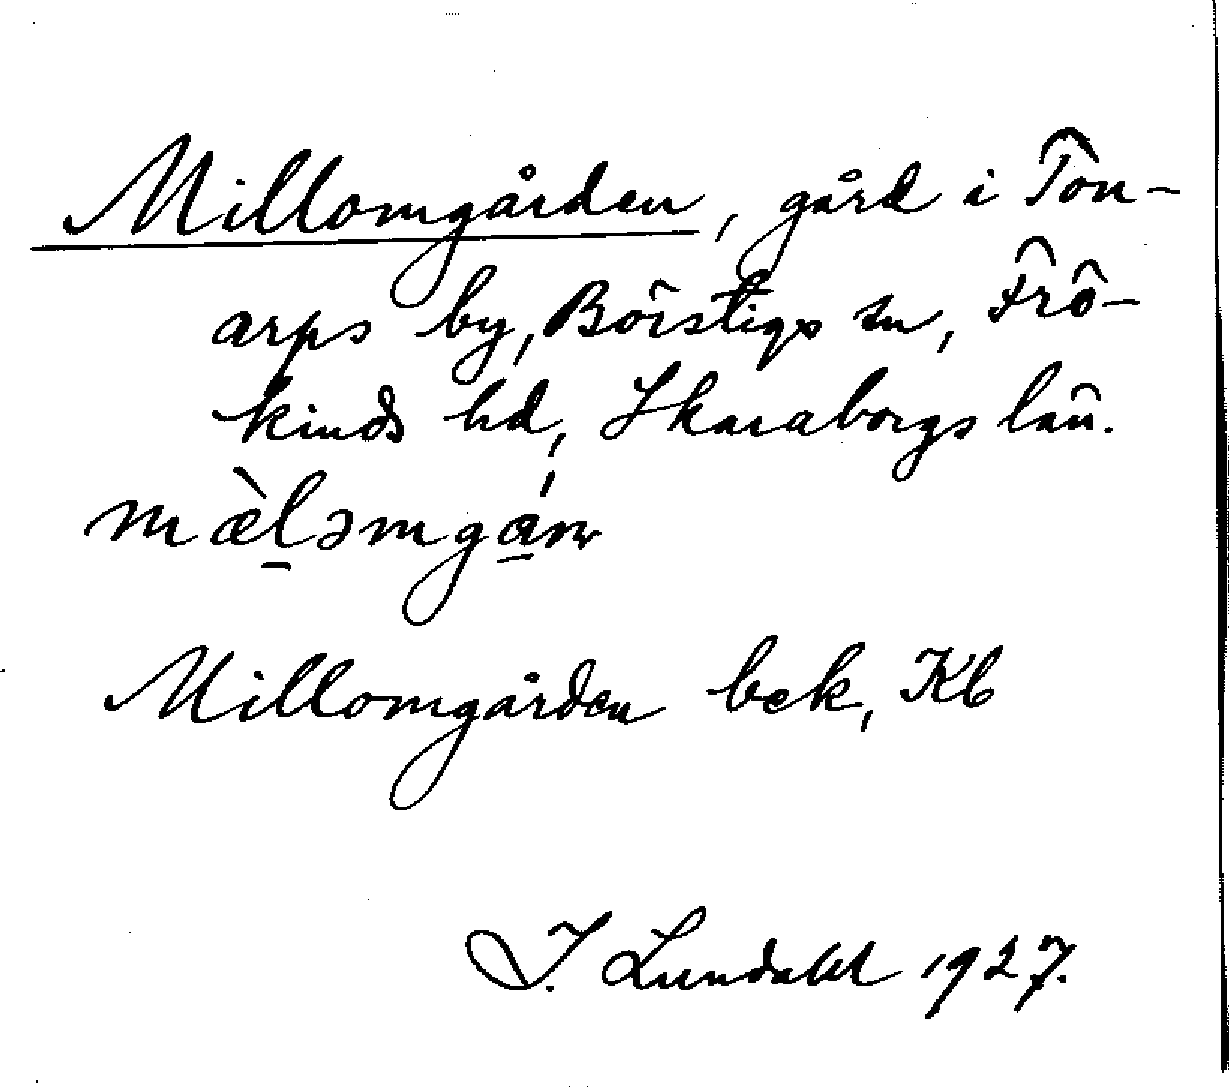 Millomgården, gård i Tôn-
arps by, Börstigs sn, Frö-
kinds hd, Skaraborgs län.
mæ̀l̠əmgá̠ɳ
Millomgården bek, Kb
I. Lundahl 1927.